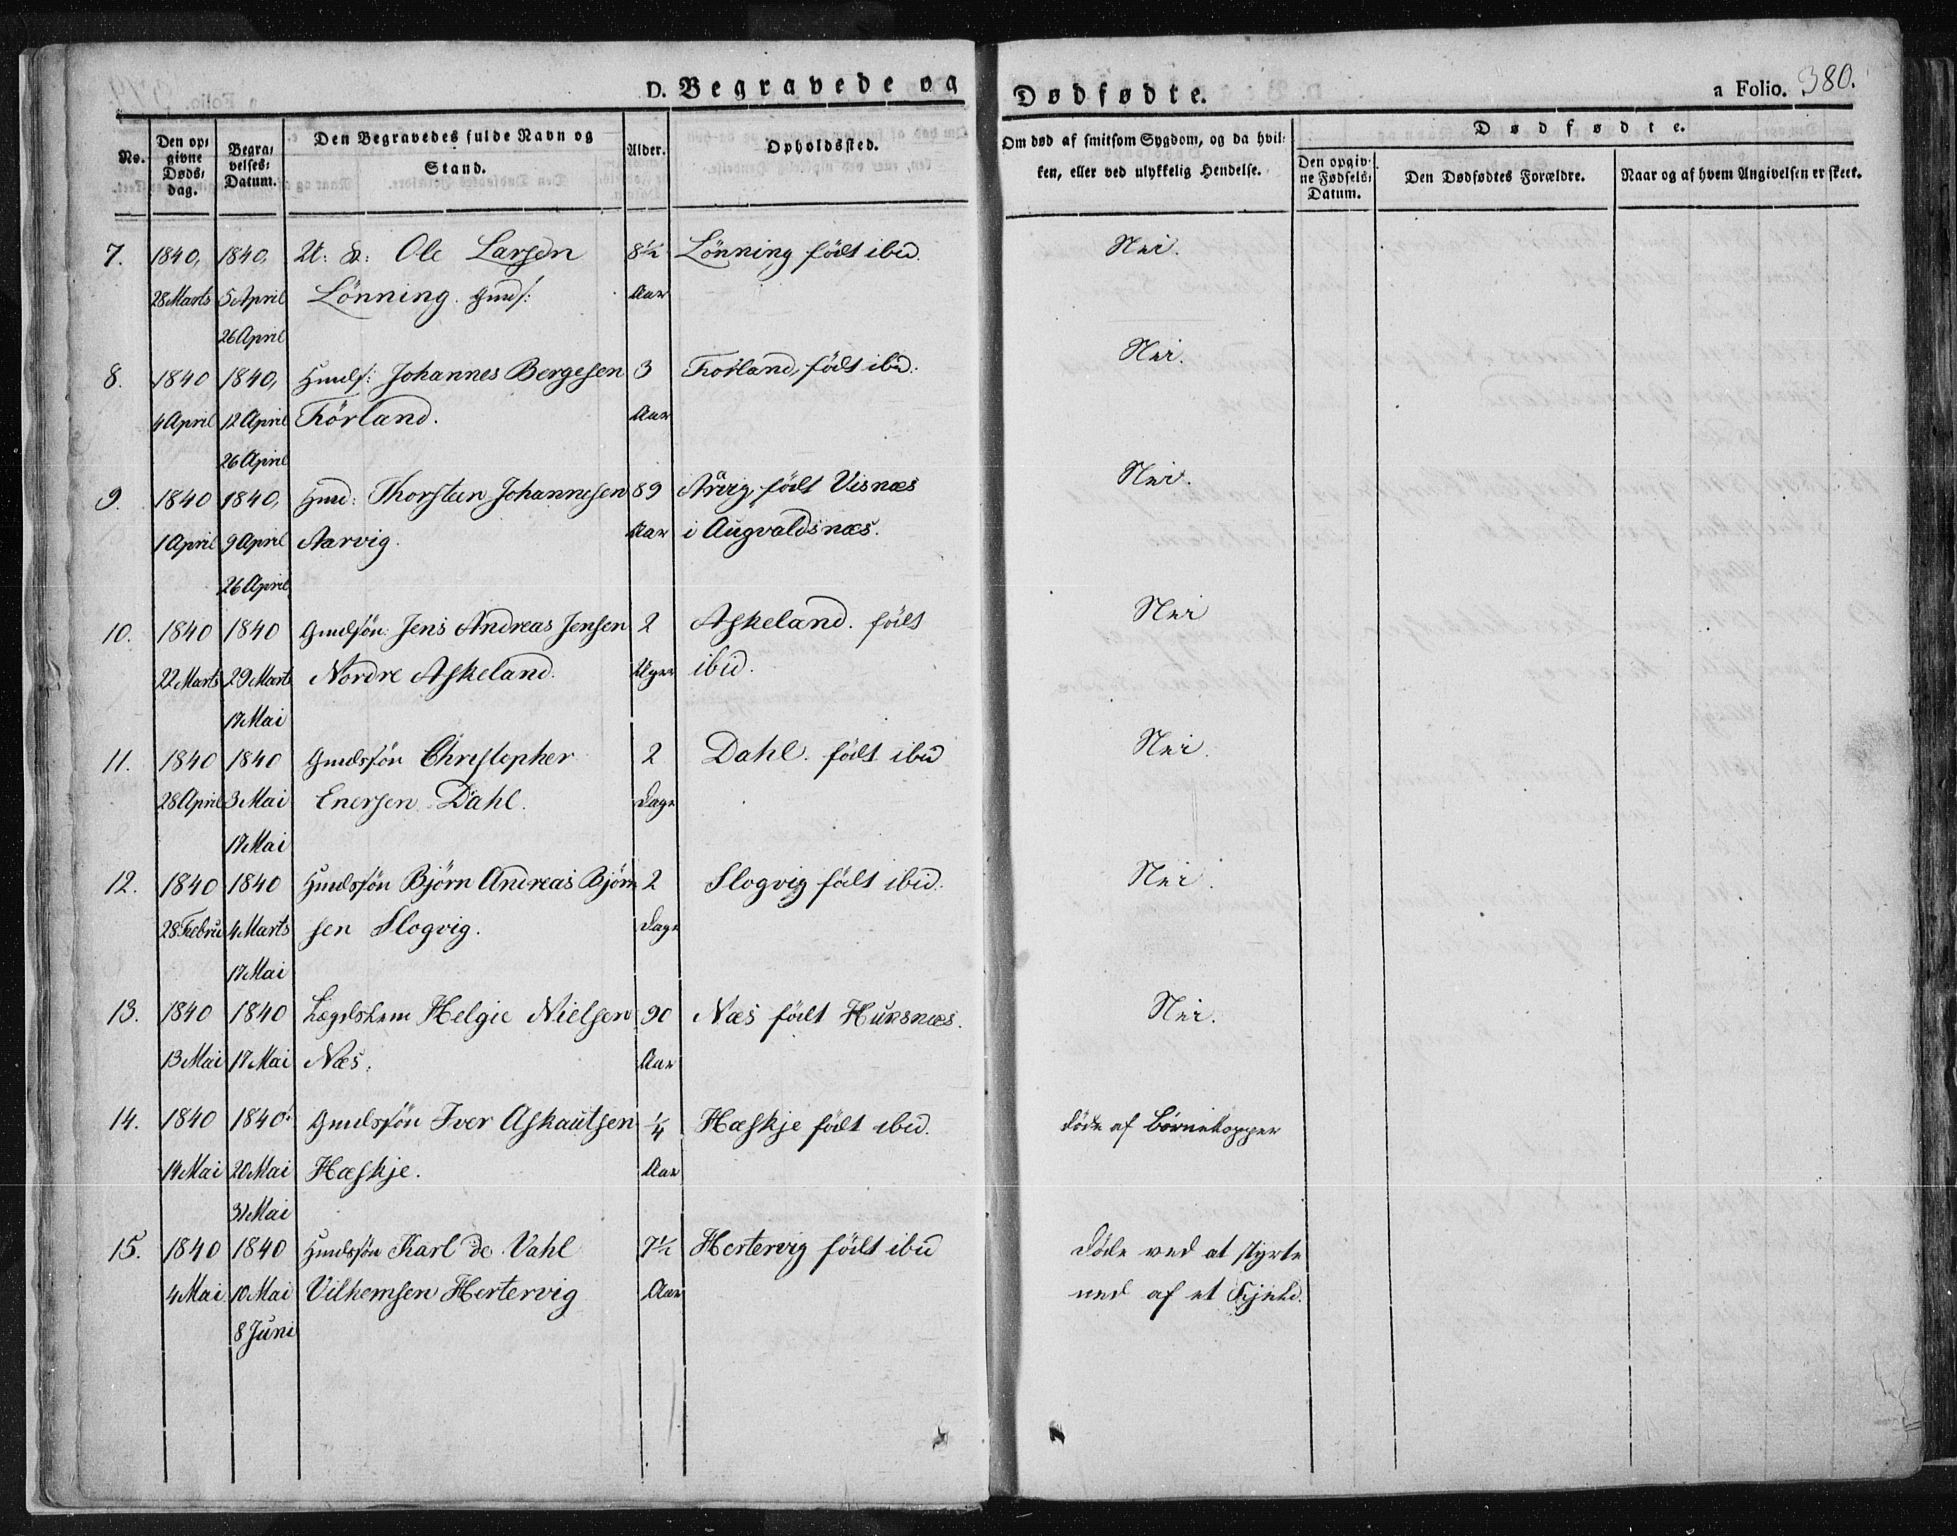 D. Begravede og
Dødfødte.
a Folio. 380.
No.
Den opgivne Døds-dag.
Begravelses-Datum.
Den Begravedes fulde Navn og Stand.
Alder.
Opholdssted.
Om død af smitsom Sygdom, og da hvilken, eller ved ulykkelig Hendelse.
Dødfødte.
Den opgivne Fødsels-Datum.
Den Dødfødtes Forældre.
Naar og af hvem Angivelsen er skeet.
7. 1840, 1840, Ole Larsen 8½ Lönning födt ibid. Nei.
28 Marts 5 April Lönning. Gmds: Aar
26 April
8. 1840 1840, Hmds: Johannes Bergesen 3 Förland, födt ibid. Nei.
4 April 12 April Förland. Aar
26 April
9. 1840 1840, Hmd: Thorsteen Johannesen 89 Årvig, födt Visnæs Nei.
1 April 9 April Aarvig. Aar i Augvaldsnæs.
26 April
10. 1840 1840 Gmdsön Jens Andreas Jensen 2 Askeland. födt Nei
22 Marts 29 Marts Nordre Askeland. Uger ibid.
17 Mai
11. 1840 1840 Gmdssön Christopher 2 Dahl. födt ibid Nei.
28 April 3 Mai Enersen Dahl. Dage
17 Mai
12. 1840 1840 Hmdssön Björn Andreas Björn 2 Slogvig födt ibid. Nei.
28 Febru 4 Marts sen Slogvig. Dage
17 Mai
13. 1840 1840 Lægdslem Helgie Nielsen 90 Næs födt Huusnæs. Nei.
13 Mai 17 Mai Næs. Aar
14. 1840 1840 Gmdssön Iver Askautsen ¼ Hæskje födt ibid. döde af Börnekopper
14 Mai 20 Mai Hæskje. Aar
31 Mai
15. 1840 1840 Hmdssön Karl de Vahl 7½ Hertervig födt ibid döde ved at styrte
4 Mai 10 Mai Vilhemsen Hertervig Aar ned af et Fjeld.
8 Juni